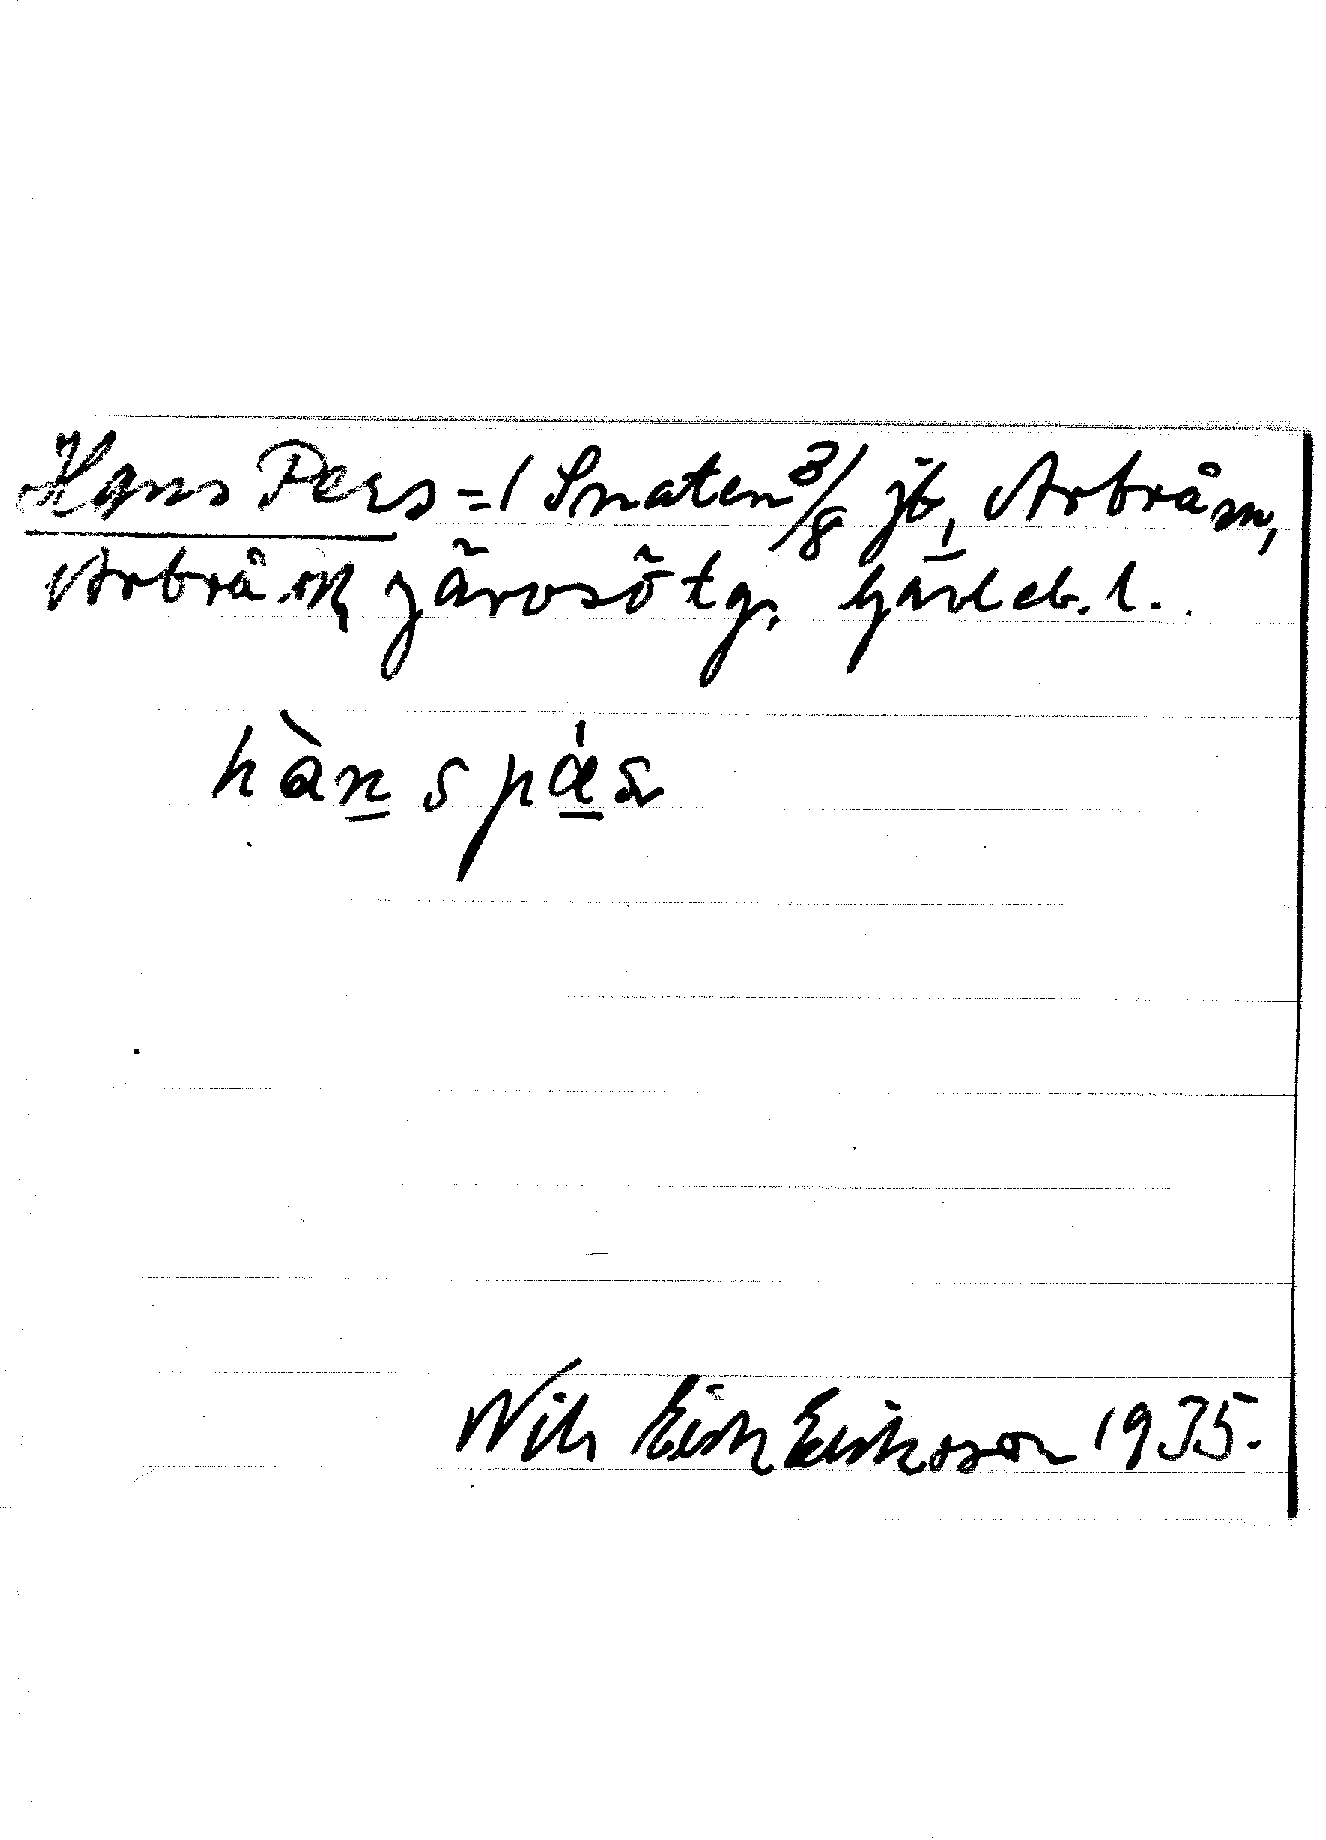 Hans Pers = 1 Snaten 3/8 jb, Arbrå sn,
Arbrå o. Järvsö tg, Gävleb. l.
hàn spá̱s
Nils Erik Eriksson 1935.